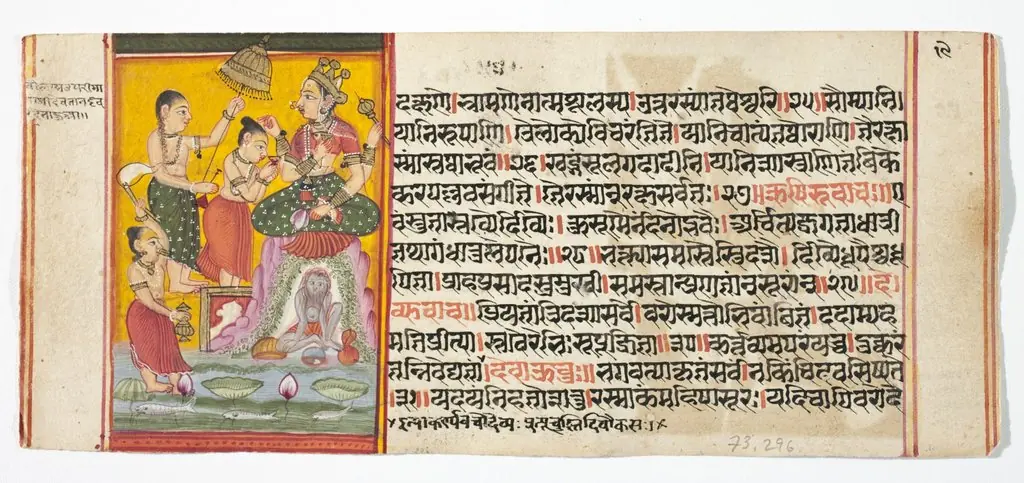 १९
दक्षिणे। भ्रामणेनात्मशूलस्य। उत्तरस्यां तथेश्वरि॥२५॥ सौम्यानि।
यानिरूपाणि। त्रैलोक्ये विचरंति ते। यानि चात्यंतघोराणि। तै रक्षा
स्मांस्तथा भुवं॥२६॥ खड्गशूलगदादीनि। यानि चास्त्राणि तेंबिके
करपल्लवसंगीनि। तैरस्मान् रक्ष सर्वतः॥२७॥ ऋषिरुवाच॥ ए
वं स्तुता सुरैर्दिव्यैः। कुसुमैर्नंदनोद्भवैः। अर्चिता जगतां धात्री।
तथा गंधानुलेपनैः॥२८॥ भक्त्या समस्तैस्त्रिदशै। र्दिव्यैर्धूपैः सुधू
पिता। प्राह प्रसादसुमुखी। समस्तान् प्रणतान् सुरान्॥२९॥ दे
व्युवाच॥ व्रियतां त्रिदशाः सर्वे। यदस्मत्तोभिवांछितं। ददाम्यह
मतिप्रीत्या। स्तवैरेभिः सुपूजिता॥३०॥ कर्तव्यमपरं यच्च। दुष्करं
तन्न विद्महे। देवा ऊचुः॥ भगवत्या कृतं सर्वं। न किंचिदवशिष्यते
॥३१॥ यदयं निहतः शत्रु। रस्माकं महिषासुरः। यदि चापि वरो दे
इत्याकर्ण्य वचो देव्याः प्रत्यूचुस्ते दिवौकसः।
73.296